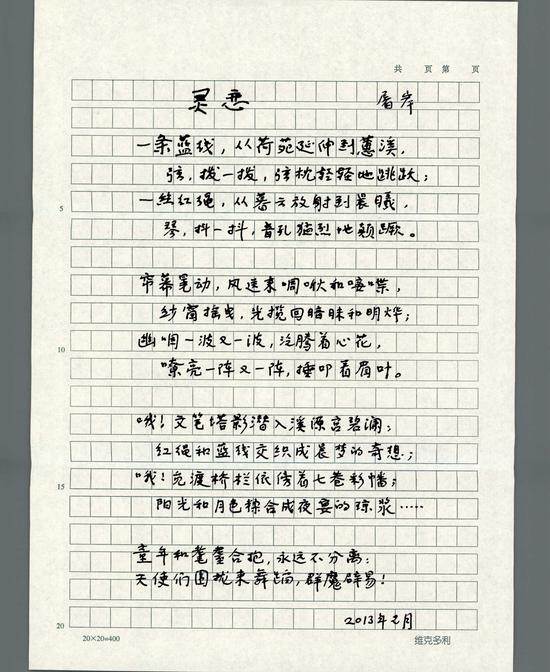 共 页 第 页
灵恋 屠岸
一条蓝线,从荷苑延伸到蕙溪,
弦,拨一拨,弦枕轻轻地跳跃;
5
一丝红绳,从暮云放射到晨曦,
琴,抖一抖,音孔猛烈地颠蹶。
帘幕晃动,风送来啁啾和唼喋,
纱窗摇曳,光揽回暗昧和明烨;
10
幽咽一波又一波,汽腾着心花,
嘹亮一阵又一阵,捶叩着眉叶。
哦!文笔塔影潜入溪源宫碧澜;
红绳和蓝线交织成晨梦的奇想;
15
哦!渡桥栏依傍着七卷彩幡;
阳光和月色糅合成夜宴的琼浆……
童年和耄耋合抱,永远不分离;
天使们围拢来舞蹈,群魔辟易!
2013年元月
20
20×20=400 维克多利